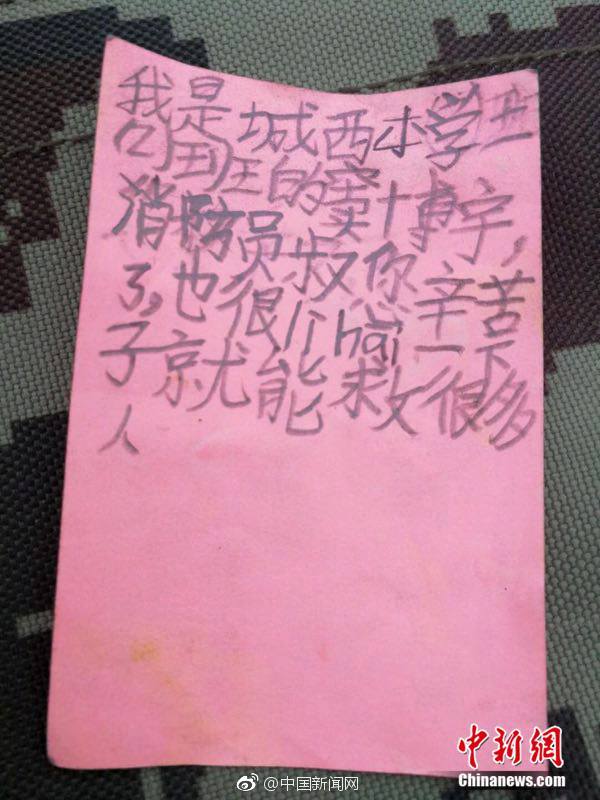 我是城西小学
班的窦博宇，
消防员叔您辛苦
了，也很厉hai一下
子就能救很多
人
@中国新闻网
中新網
Chinanews.com